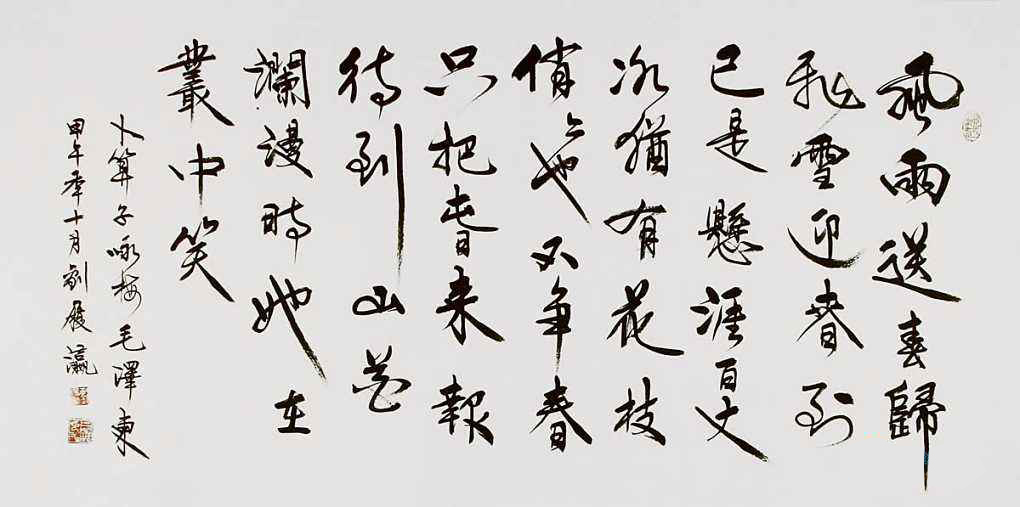 風雨送春歸
飛雪迎春到
已是懸涯百丈
冰猶有花枝
俏俏也不爭春
只把春来報
待到山花
瀾漫時她在
叢中笑
卜算子咏梅毛澤東
甲午年十月劉展瀛